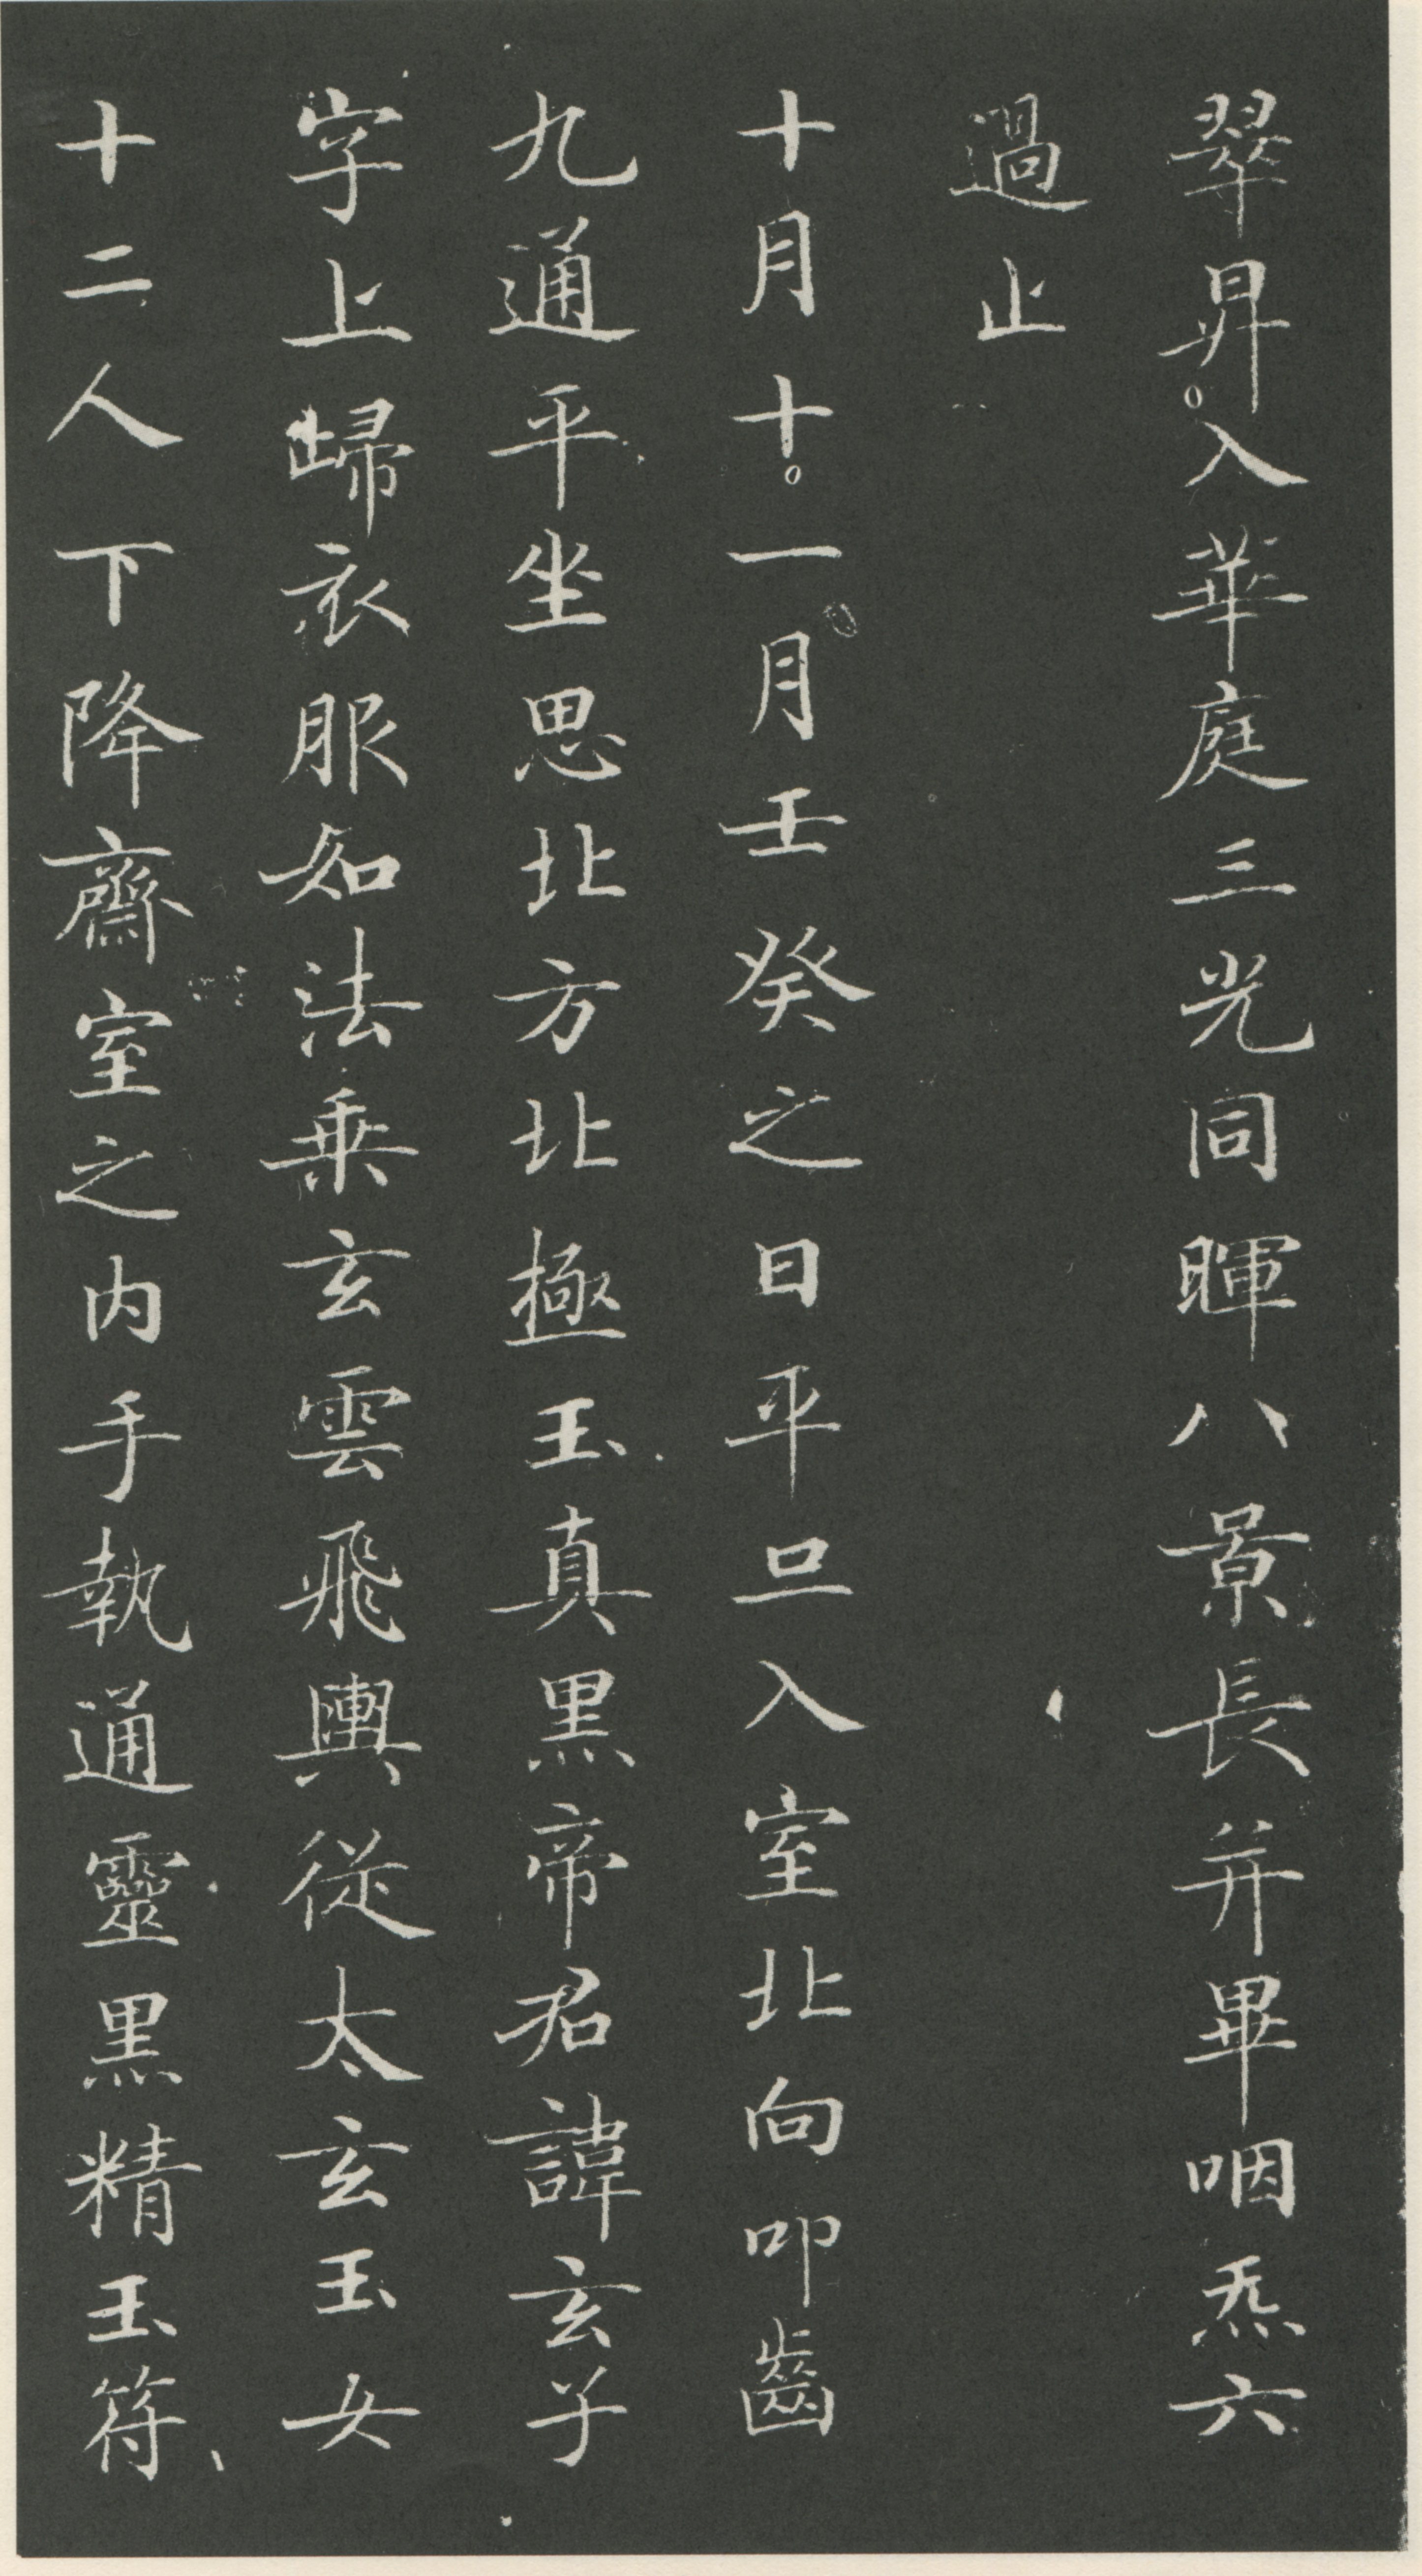 翠昇入華庭三光同暉八景長并畢咽炁六
過止
十月十一月壬癸之日平旦入室北向叩齒
九通平坐思北方北極玉真黒帝君諱玄子
字上歸衣服如法乗玄雲飛輿從太玄玉女
十二人下降齋室之内手執通靈黒精玉符